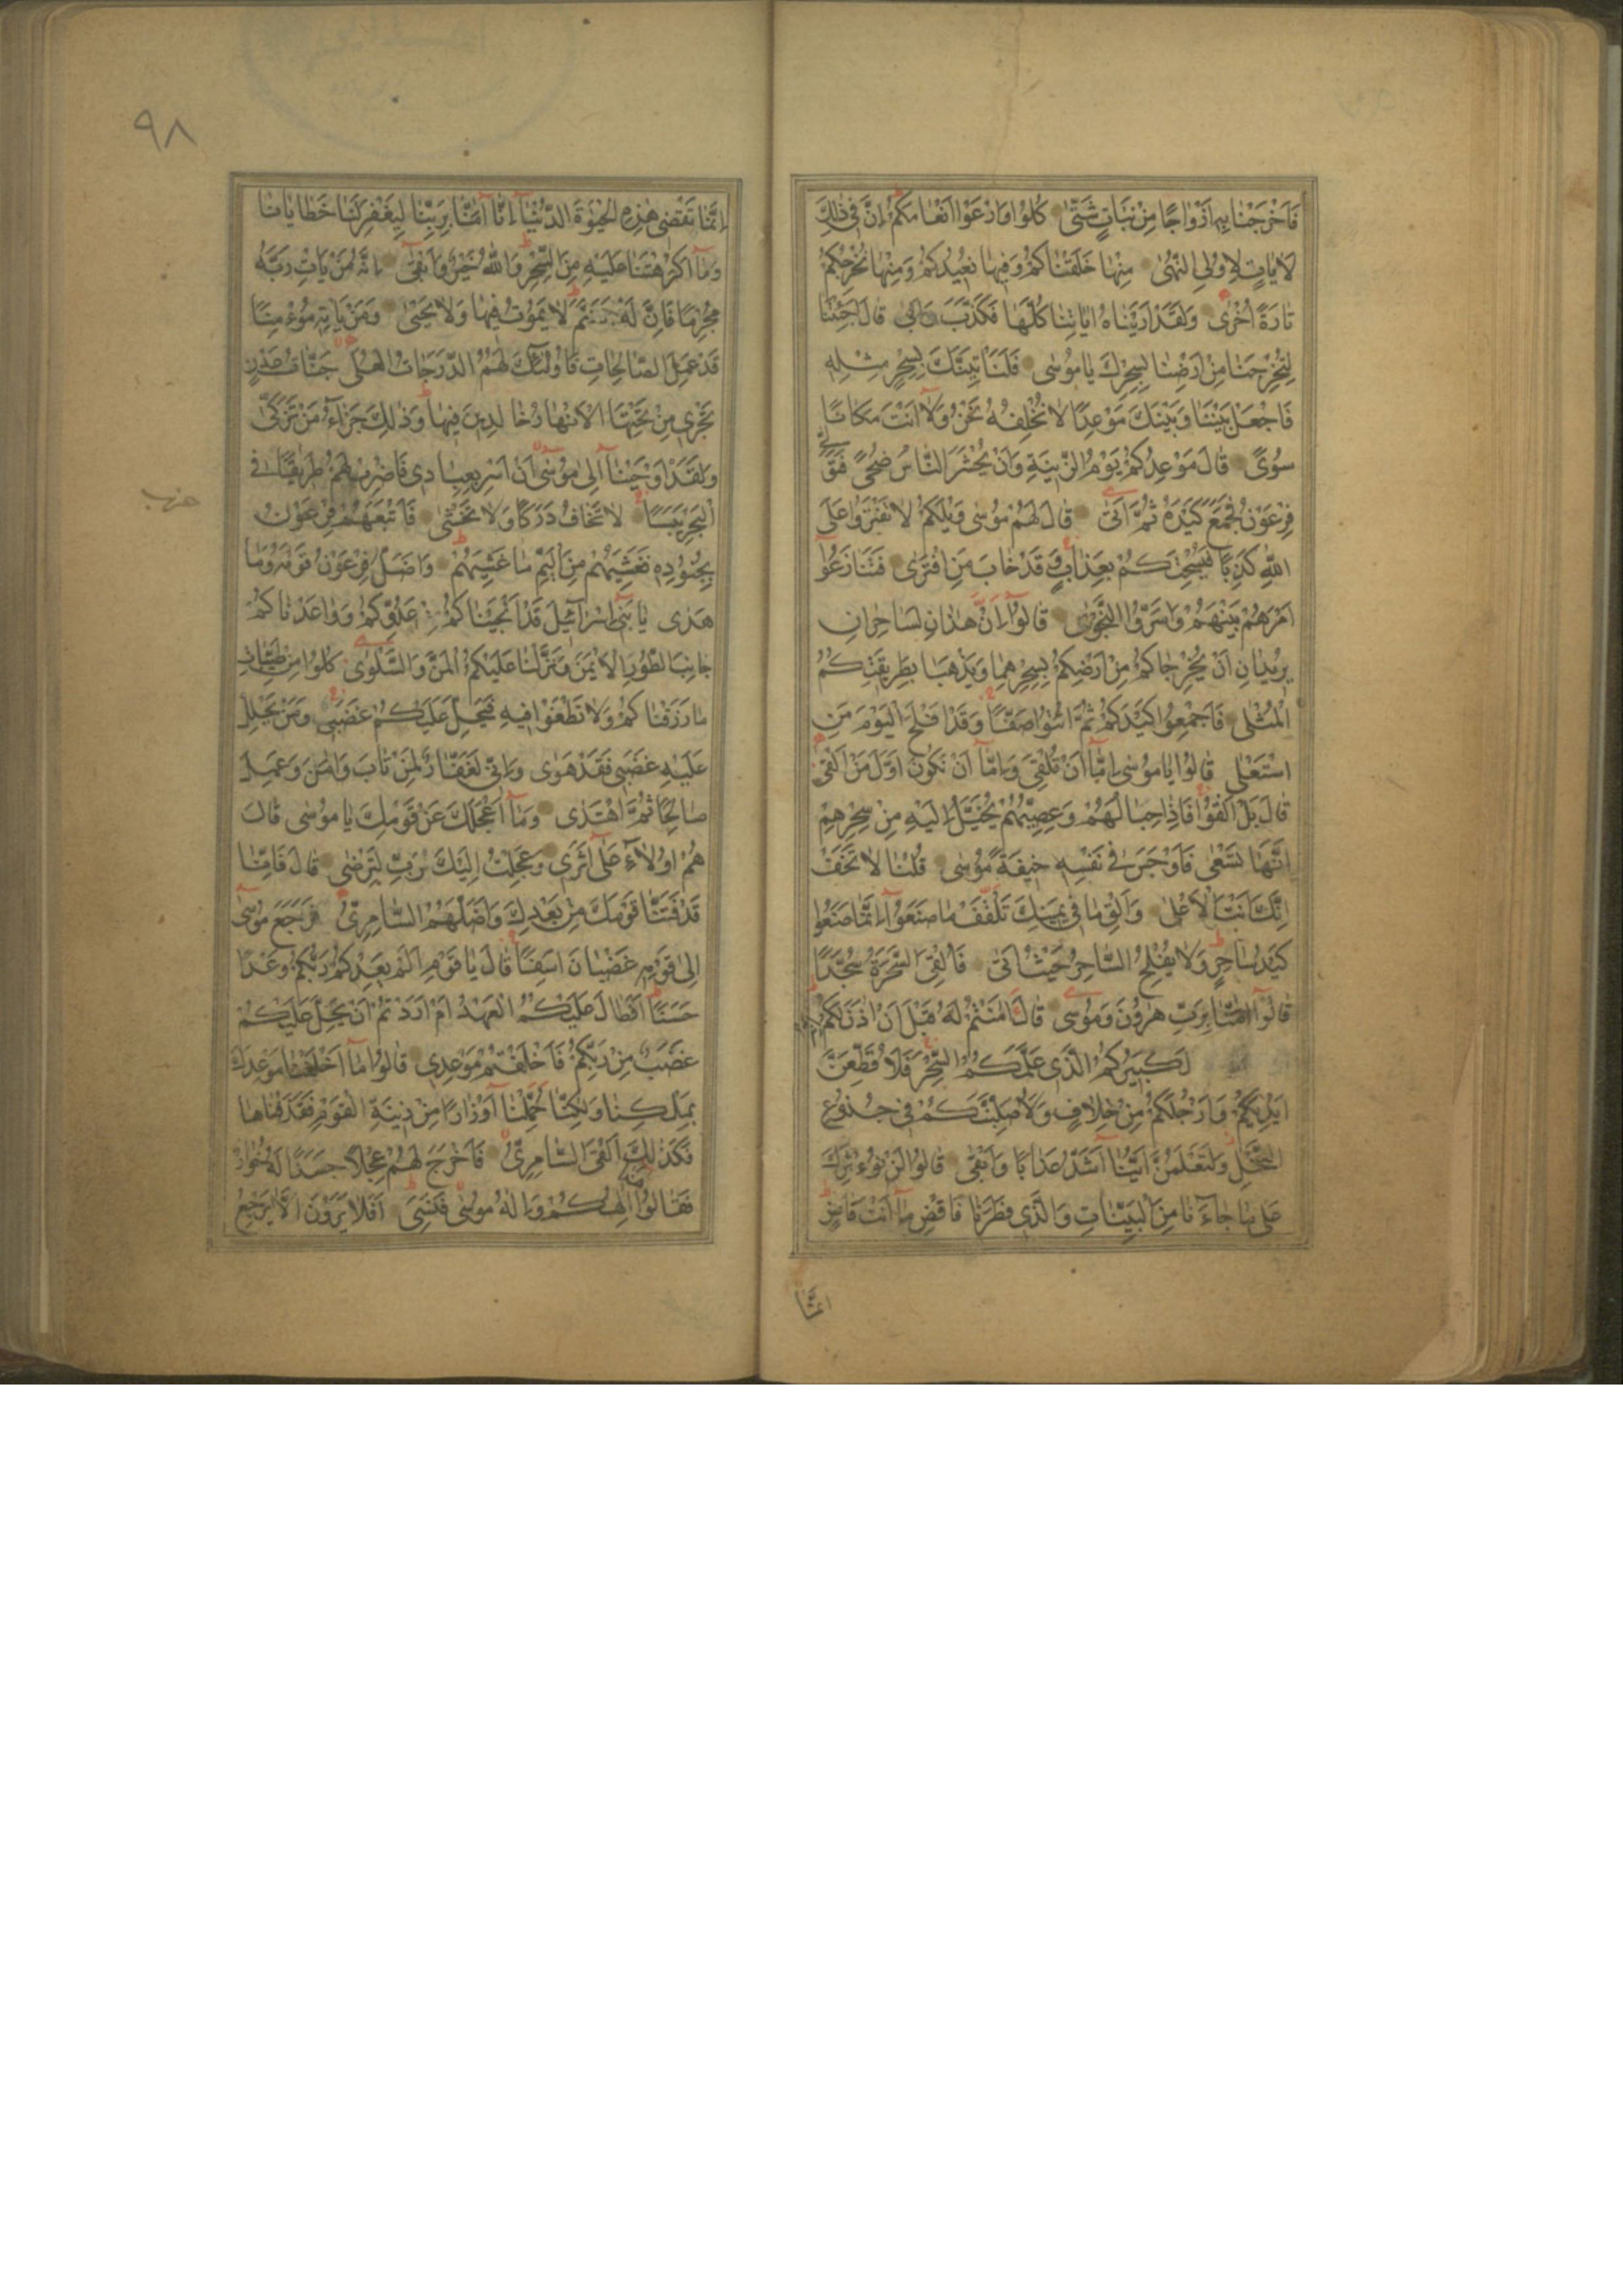 فَاَخْرَجْنَا بِهِ اَزْوَاجًا مِنْ نَبَاتٍ شَتّٰى كُلُوْا وَارْعَوْا اَنْعَامَكُمْ اِنَّ فِى ذٰلِكَ
لَاٰيَاتٍ لِاُولِى النُّهٰى مِنْهَا خَلَقْنَاكُمْ وَفِيهَا نُعِيْدُكُمْ وَمِنْهَا نُخْرِجُكُمْ
تَارَةً اُخْرٰى وَلَقَدْ اَرَيْنَاهُ اٰيَاتِنَا كُلَّهَا فَكَذَّبَ وَاَبٰى قَالَ اَجِئْتَنَا
لِتُخْرِجَنَا مِنْ اَرْضِنَا بِسِحْرِكَ يَا مُوْسٰى فَلَنَاْتِيَنَّكَ بِسِحْرٍ مِثْلِهِ
فَاجْعَلْ بَيْنَنَا وَبَيْنَكَ مَوْعِدًا لَا نُخْلِفُهُ نَحْنُ وَلَا اَنْتَ مَكَانًا
سُوًى قَالَ مَوْعِدُكُمْ يَوْمُ الزِّيْنَةِ وَاَنْ يُحْشَرَ النَّاسُ ضُحًى فَتَوَلّٰى
فِرْعَوْنُ فَجَمَعَ كَيْدَهُ ثُمَّ اَتٰى قَالَ لَهُمْ مُوْسٰى وَيْلَكُمْ لَا تَفْتَرُوْا عَلَى
اللّٰهِ كَذِبًا فَيُسْحِتَكُمْ بِعَذَابٍ وَقَدْ خَابَ مَنِ افْتَرٰى فَتَنَازَعُوْا
اَمْرَهُمْ بَيْنَهُمْ وَاَسَرُّوا النَّجْوٰى قَالُوْا اِنْ هٰذَانِ لَسَاحِرَانِ
يُرِيْدَانِ اَنْ يُخْرِجَاكُمْ مِنْ اَرْضِكُمْ بِسِحْرِهِمَا وَيَذْهَبَا بِطَرِيْقَتِكُمُ
الْمُثْلٰى فَاَجْمِعُوْا كَيْدَكُمْ ثُمَّ ائْتُوْا صَفًّا وَقَدْ اَفْلَحَ الْيَوْمَ مَنِ
اسْتَعْلٰى قَالُوْا يَا مُوْسٰى اِمَّا اَنْ تُلْقِىَ وَاِمَّا اَنْ نَكُوْنَ اَوَّلَ مَنْ اَلْقٰى
قَالَ بَلْ اَلْقُوْا فَاِذَا حِبَالُهُمْ وَعِصِيُّهُمْ يُخَيَّلُ اِلَيْهِ مِنْ سِحْرِهِمْ
اَنَّهَا تَسْعٰى فَاَوْجَسَ فِى نَفْسِهِ خِيْفَةً مُوْسٰى قُلْنَا لَا تَخَفْ
اِنَّكَ اَنْتَ الْاَعْلٰى وَاَلْقِ مَا فِى يَمِيْنِكَ تَلْقَفْ مَا صَنَعُوْا اِنَّمَا صَنَعُوْا
كَيْدُ سَاحِرٍ وَلَا يُفْلِحُ السَّاحِرُ حَيْثُ اَتٰى فَاُلْقِىَ السَّحَرَةُ سُجَّدًا
قَالُوْا اٰمَنَّا بِرَبِّ هٰرُوْنَ وَمُوْسٰى قَالَ اٰمَنْتُمْ لَهُ قَبْلَ اَنْ اٰذَنَ لَكُمْ
لَكَبِيْرُكُمُ الَّذِى عَلَّمَكُمُ السِّحْرَ فَلَاُقَطِّعَنَّ
اَيْدِيَكُمْ وَاَرْجُلَكُمْ مِنْ خِلَافٍ وَلَاُصَلِّبَنَّكُمْ فِى جُذُوْعِ
النَّخْلِ وَلَتَعْلَمُنَّ اَيُّنَا اَشَدُّ عَذَابًا وَاَبْقٰى قَالُوْا لَنْ نُؤْثِرَكَ
عَلٰى مَا جَاءَنَا مِنَ الْبَيِّنَاتِ وَالَّذِى فَطَرَنَا فَاقْضِ مَا اَنْتَ قَاضٍ
انما
٩٨
اِنَّمَا تَقْضِى هٰذِهِ الْحَيٰوةَ الدُّنْيَا اِنَّا اٰمَنَّا بِرَبِّنَا لِيَغْفِرَ لَنَا خَطَايَانَا
وَمَا اَكْرَهْتَنَا عَلَيْهِ مِنَ السِّحْرِ وَاللّٰهُ خَيْرٌ وَاَبْقٰى اِنَّهُ مَنْ يَاْتِ رَبَّهُ
مُجْرِمًا فَاِنَّ لَهُ جَهَنَّمَ لَا يَمُوْتُ فِيْهَا وَلَا يَحْيٰى وَمَنْ يَاْتِهِ مُؤْمِنًا
قَدْ عَمِلَ الصَّالِحَاتِ فَاُولٰئِكَ لَهُمُ الدَّرَجَاتُ الْعُلٰى جَنَّاتُ عَدْنٍ
تَجْرِى مِنْ تَحْتِهَا الْاَنْهَارُ خَالِدِيْنَ فِيْهَا وَذٰلِكَ جَزَاءُ مَنْ تَزَكّٰى
وَلَقَدْ اَوْحَيْنَا اِلٰى مُوْسٰى اَنْ اَسْرِ بِعِبَادِى فَاضْرِبْ لَهُمْ طَرِيْقًا فِى
الْبَحْرِ يَبَسًا لَا تَخَافُ دَرَكًا وَلَا تَخْشٰى فَاَتْبَعَهُمْ فِرْعَوْنُ
حزب
بِجُنُوْدِهِ فَغَشِيَهُمْ مِنَ الْيَمِّ مَا غَشِيَهُمْ وَاَضَلَّ فِرْعَوْنُ قَوْمَهُ وَمَا
هَدٰى يَا بَنِى اِسْرَائِيْلَ قَدْ اَنْجَيْنَاكُمْ مِنْ عَدُوِّكُمْ وَوَاعَدْنَاكُمْ
جَانِبَ الطُّوْرِ الْاَيْمَنَ وَنَزَّلْنَا عَلَيْكُمُ الْمَنَّ وَالسَّلْوٰى كُلُوْا مِنْ طَيِّبَاتِ
مَا رَزَقْنَاكُمْ وَلَا تَطْغَوْا فِيْهِ فَيَحِلَّ عَلَيْكُمْ غَضَبِى وَمَنْ يَحْلِلْ
عَلَيْهِ غَضَبِى فَقَدْ هَوٰى وَاِنِّى لَغَفَّارٌ لِمَنْ تَابَ وَاٰمَنَ وَعَمِلَ
صَالِحًا ثُمَّ اهْتَدٰى وَمَا اَعْجَلَكَ عَنْ قَوْمِكَ يَا مُوْسٰى قَالَ
هُمْ اُولَاءِ عَلٰى اَثَرِى وَعَجِلْتُ اِلَيْكَ رَبِّ لِتَرْضٰى قَالَ فَاِنَّا
قَدْ فَتَنَّا قَوْمَكَ مِنْ بَعْدِكَ وَاَضَلَّهُمُ السَّامِرِىُّ فَرَجَعَ مُوْسٰى
اِلٰى قَوْمِهِ غَضْبَانَ اَسِفًا قَالَ يَا قَوْمِ اَلَمْ يَعِدْكُمْ رَبُّكُمْ وَعْدًا
حَسَنًا اَفَطَالَ عَلَيْكُمُ الْعَهْدُ اَمْ اَرَدْتُمْ اَنْ يَحِلَّ عَلَيْكُمْ
غَضَبٌ مِنْ رَبِّكُمْ فَاَخْلَفْتُمْ مَوْعِدِى قَالُوْا مَا اَخْلَفْنَا مَوْعِدَكَ
بِمَلْكِنَا وَلٰكِنَّا حُمِّلْنَا اَوْزَارًا مِنْ زِيْنَةِ الْقَوْمِ فَقَذَفْنَاهَا
فَكَذٰلِكَ اَلْقَى السَّامِرِىُّ فَاَخْرَجَ لَهُمْ عِجْلًا جَسَدًا لَهُ خُوَارٌ
فَقَالُوْا هٰذَا اِلٰهُكُمْ وَاِلٰهُ مُوْسٰى فَنَسِىَ اَفَلَا يَرَوْنَ اَلَّا يَرْجِعُ